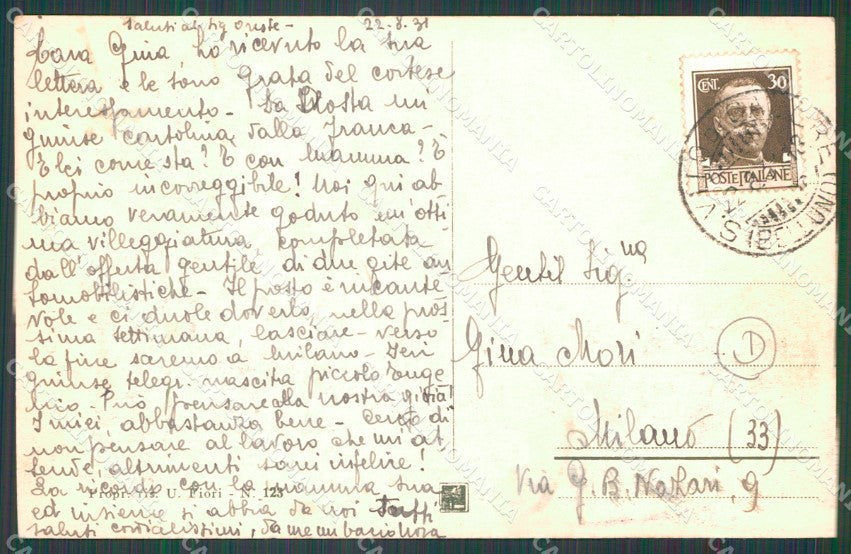 Saluti al Sig Oreste - 22-8-31
Cara Gina, ho ricevuto la sua
lettera e le sono grata del cortese
interessamento - La Posta mi
giunse cartolina dalla Franca -
E lei come sta? E con mamma? È
proprio incorreggibile! Noi qui ab
biamo veramente goduto un'otti
ma villeggiatura completata
dall'offerta gentile di due gite au
tomobilistiche - Il posto è incante
vole e ci duole doverlo, nella pros
sima settimana, lasciare - verso
la fine saremo a Milano - Ieri
giunse telegr. nascita piccolo Euge
nio. Può pensare alla nostra gioia!
I miei, abbastanza bene - Cerco di
non pensare al lavoro che mi at
tende, altrimenti sarei infelice!
La ricordo con la mamma sua
ed insieme si abbia da noi tutti
saluti cordialissimi, da me un bacio
Propr. ris. U. Fiori - N. 123
CENT. 30
POSTE ITALIANE
S. VITO
(BELLUNO)
Gentil Signa
Gina Mori
D
Milano (33)
Via G. B. Nazari, 9
CARTOLINOMANIA